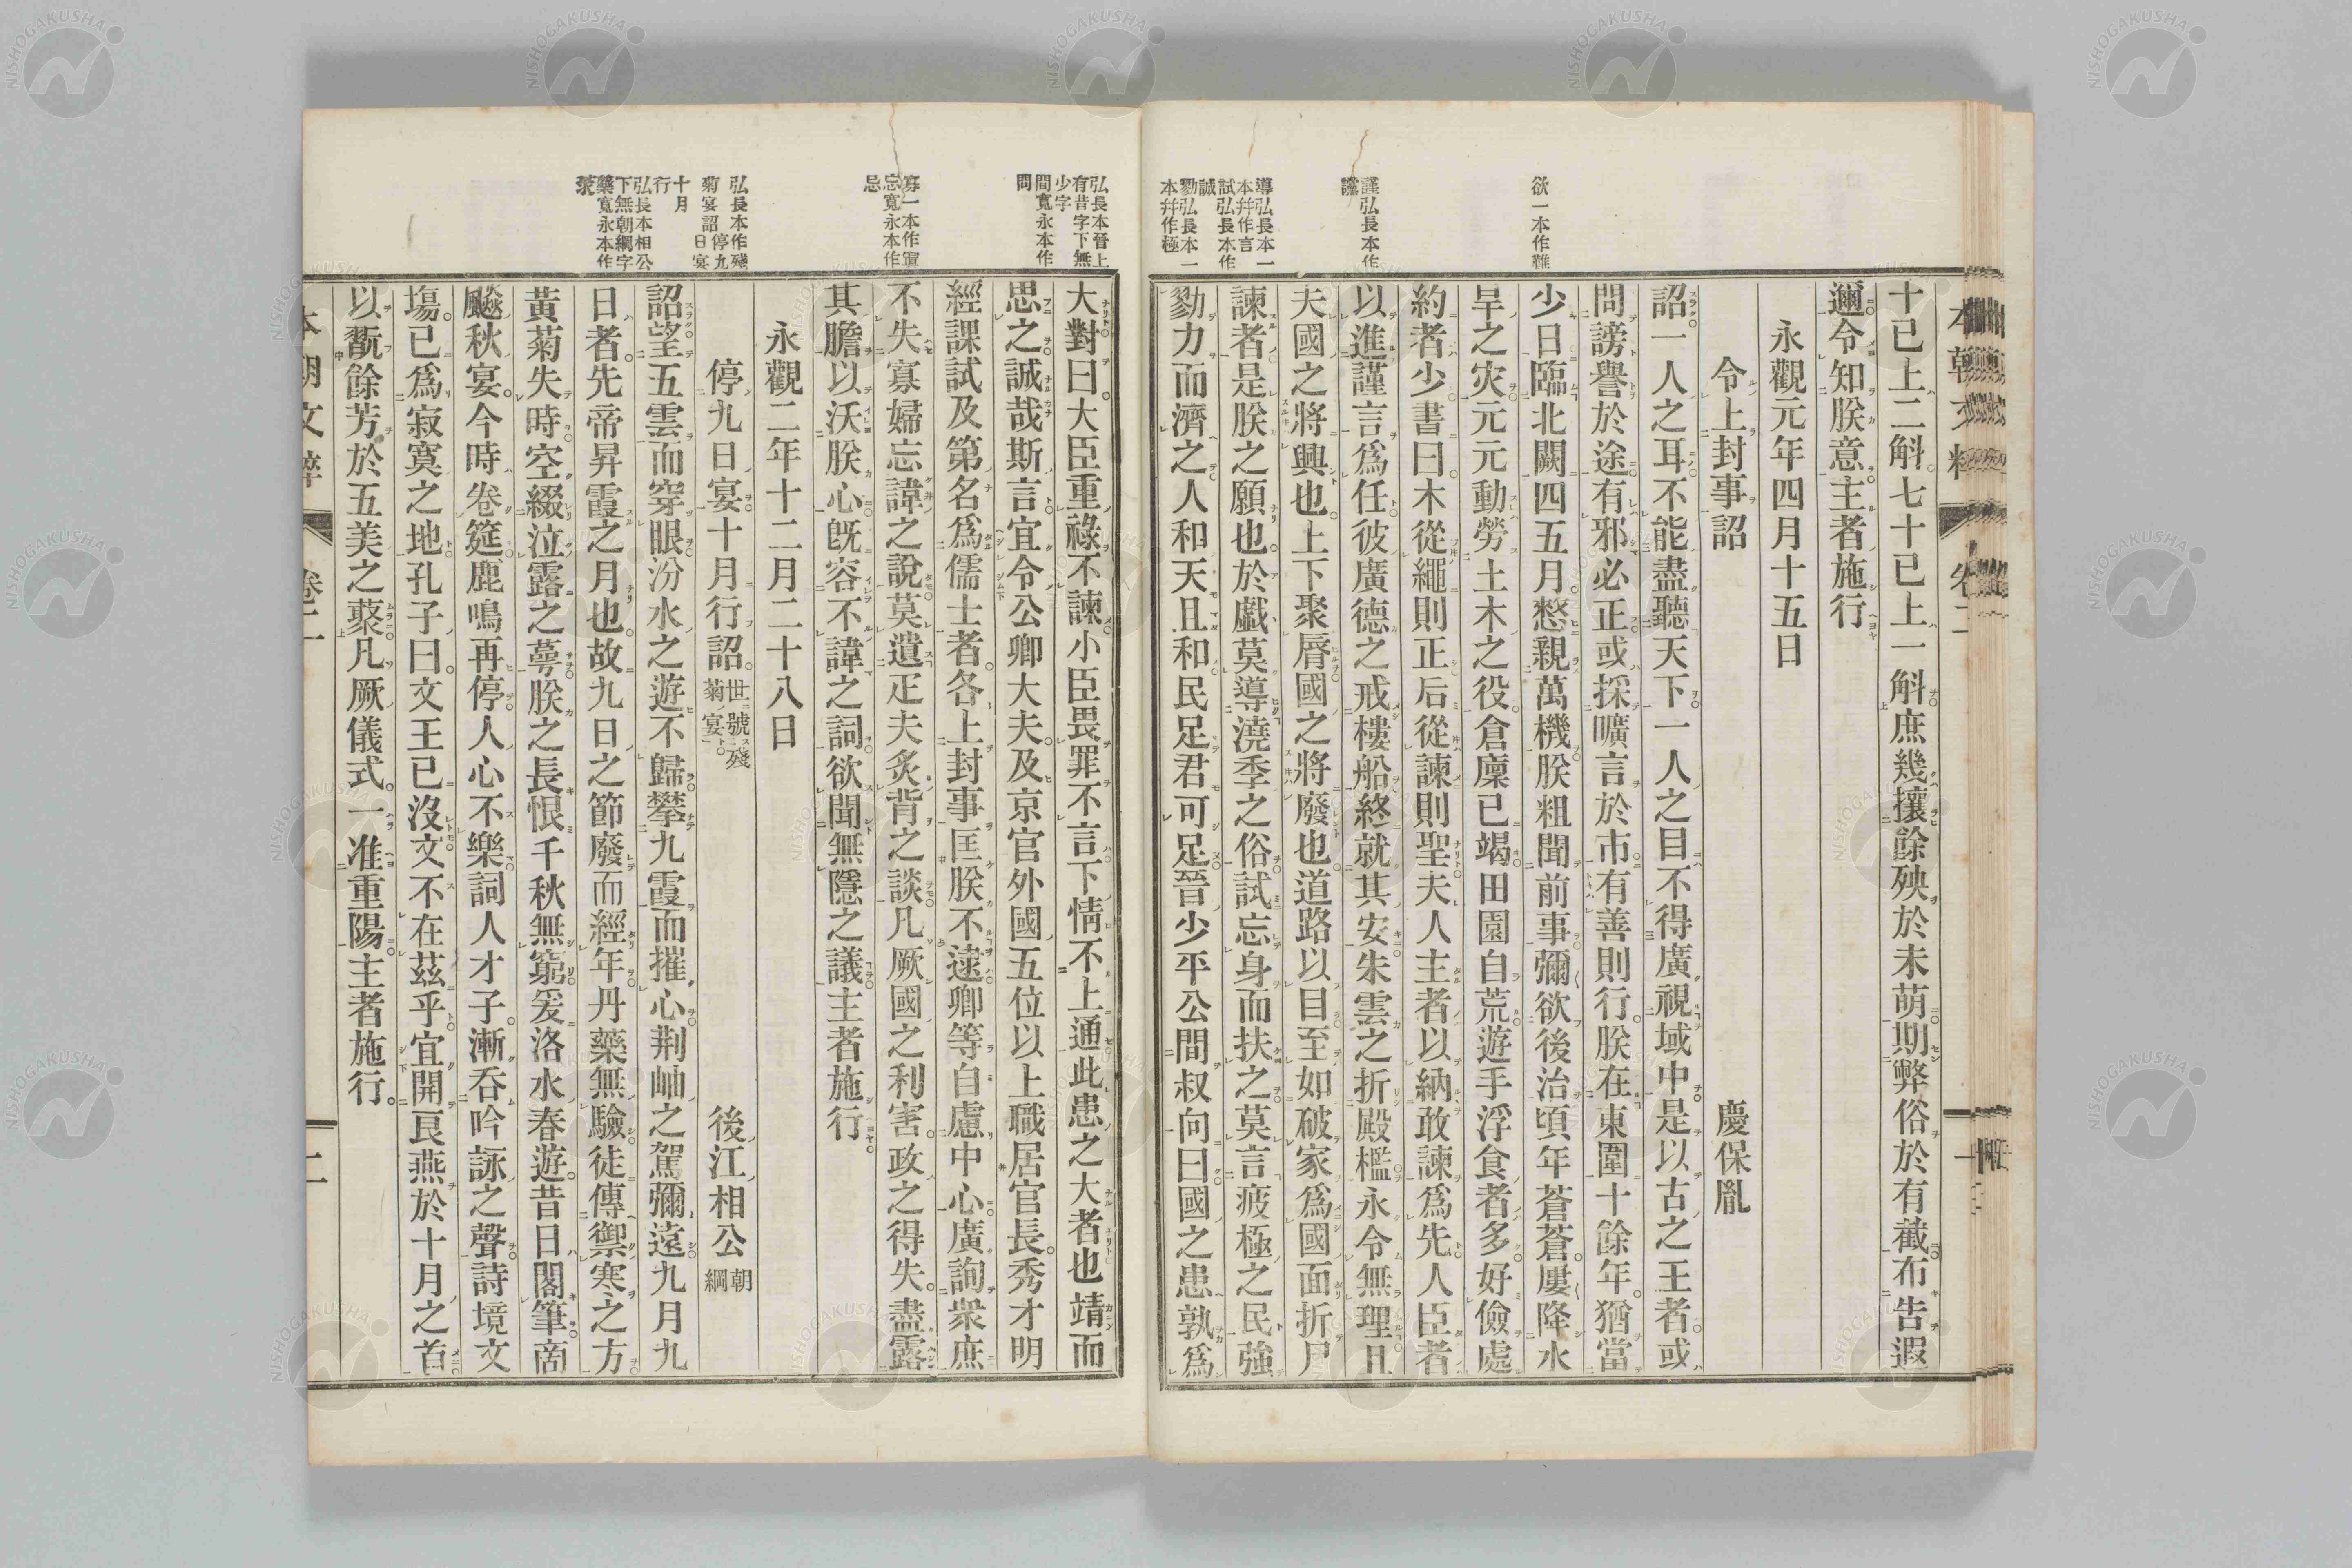 十已上二斛七十已上一斛庶幾攘餘殃於未萌期弊俗於有截布告遐
邇令知朕意主者施行
永觀元年四月十五日
令上封事詔 慶保胤
詔一人之耳不能盡聽天下一人之目不得廣視域中是以古之王者或
問謗譽於途有邪必正或採曠言於市有善則行朕在東圍十餘年猶當
少日臨北闕四五月憖親萬機朕粗聞前事彌欲後治頃年蒼蒼屢降水
旱之灾元元動勞土木之役倉廩已竭田園自荒遊手浮食者多好儉處
約者少書曰木從繩則正后從諫則聖夫人主者以納敢諫爲先人臣者
以進謹言爲任彼廣德之戒樓船終就其安朱雲之折殿檻永令無理且
夫國之將興也上下聚脣國之將廢也道路以目至如破家爲國面折尸
諫者是朕之願也於戲莫導澆季之俗試忘身而扶之莫言疲極之民強
勠力而濟之人和天且和民足君可足晉少平公間叔向曰國之患孰爲
弘長本晉上有昔字下無少字
間寬永本作問
寡一本作寧
忘寬永本作忌
弘長本作殘菊宴詔停九日宴十月行
弘長本相公下無朝綱字
蘂寬永本作蘂
欲一本作難
謹弘長本作讜
導弘長本一本幷作言
試弘長本作誠
勠弘長本一本幷作極
大對曰大臣重祿不諫小臣畏罪不言下情不上通此患之大者也靖而
思之誠哉斯言宜令公卿大夫及京官外國五位以上職居官長秀才明
經課試及第名爲儒士者各上封事匡朕不逮卿等自慮中心廣詢衆庶
不失寡婦忘諱之說莫遺疋夫炙背之談凡厥國之利害政之得失盡露
其膽以沃朕心旣容不諱之詞欲聞無隱之議主者施行
永觀二年十二月二十八日
停九日宴十月行詔 世號殘菊宴 後江相公 朝綱
詔望五雲而穿眼汾水之遊不歸攀九霞而摧心荆岫之駕彌遠九月九
日者先帝昇霞之月也故九日之節廢而經年丹藥無驗徒傳禦寒之方
黃菊失時空綴泣露之蕚朕之長恨千秋無窮爰洛水春遊昔日閣筆商
飈秋宴今時卷筵鹿鳴再停人心不樂詞人才子漸吞吟詠之聲詩境文
塲已爲寂寞之地孔子曰文王已沒文不在茲乎宜開良燕於十月之首
以翫餘芳於五美之藂凡厥儀式一准重陽主者施行
本朝文粹 卷二 二